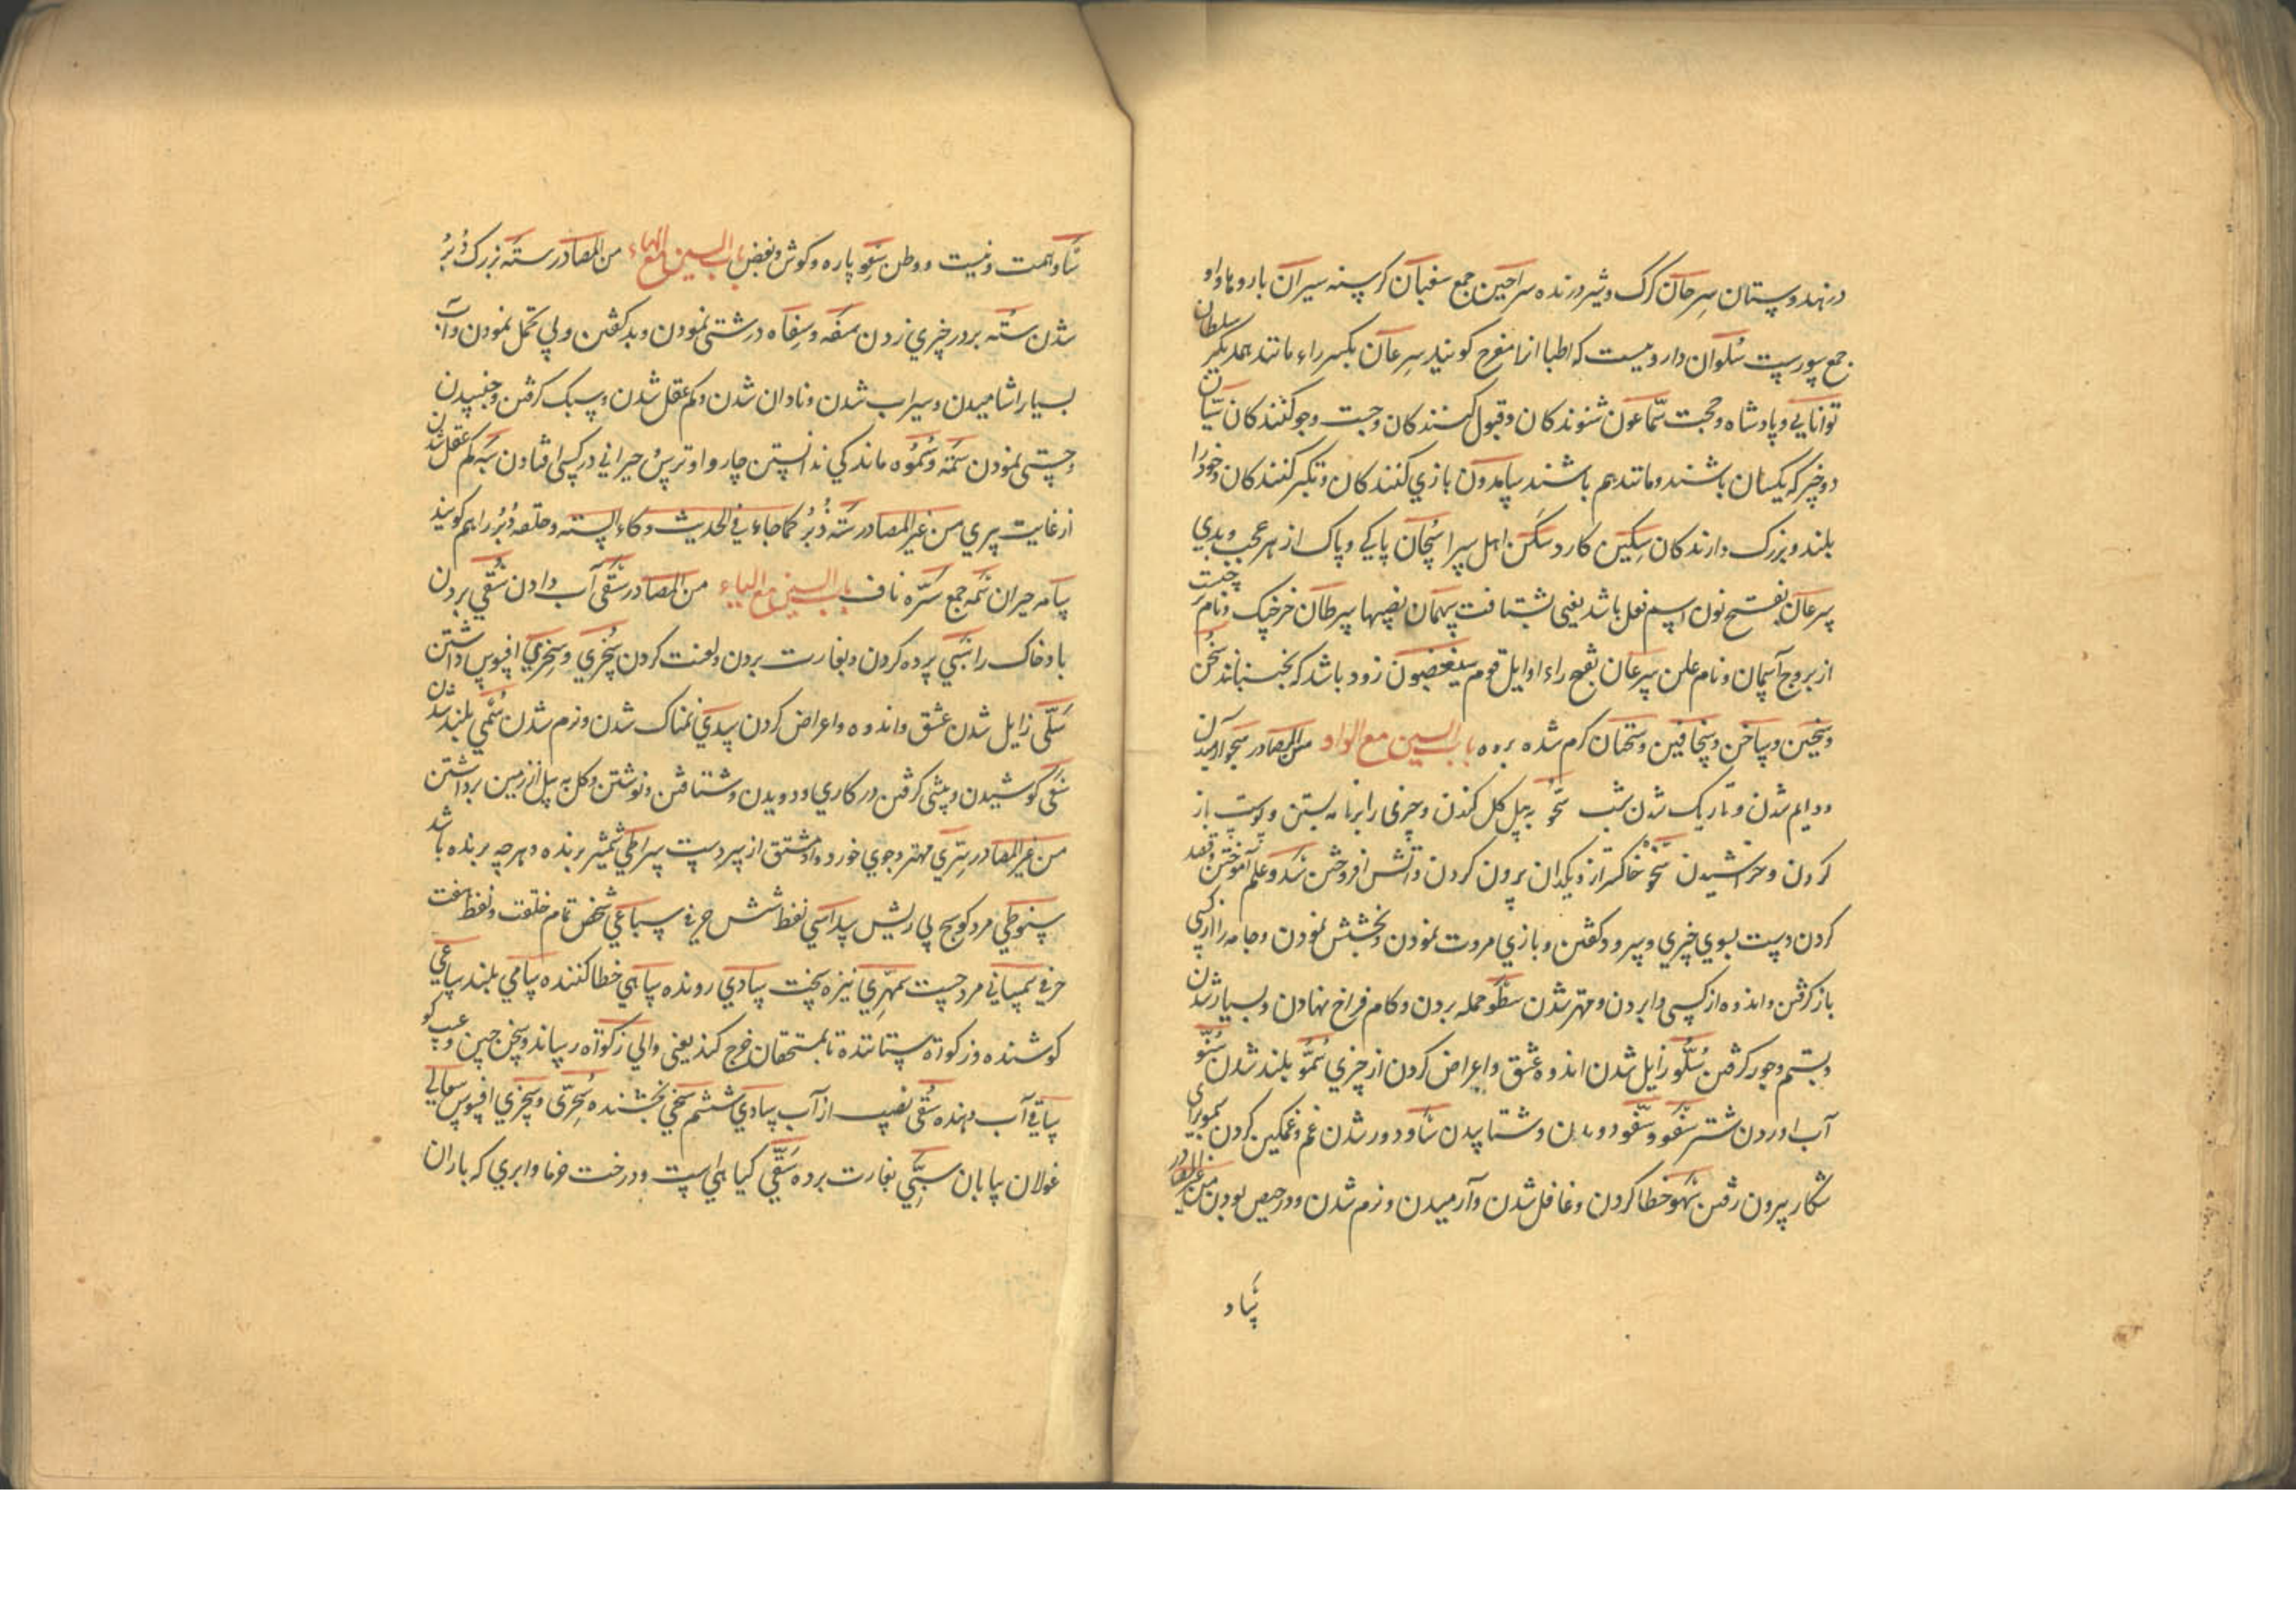 در هندوستان سرحان کرک و شیر درنده سراحین جمع سغبان کرسنه سیران بارو ها و او
جمع سورست سلوان داروییست که اطبا انرا مفرح کویند سرعان بکسر راء مانند همدیکر سلطان
توانایی و پادشاه و حجت سمّاعون شنوندکان و قبول کنندکان و جست و جو کنندکان سیّان
دو چیز که یکسان باشند و مانند هم باشند سامدون بازی کنندکان و تکبر کنندکان و خود را
بلند و بزرک دارندکان سکین کارد سکن اهل سرا سبحان پاکی و پاک از هر عیب و بدی
سرعان بفتح نون اسم فعل باشد یعنی بشتافت سهمان نصیبها سرطان خرچنک و نام
از بروج آسمان و نام علتی سرعان بفتح راء اوایل قوم سینغضون زود باشد که بجنبانند سخن
و سخین و ساخن و سخاخین و سخنان کرم شده بوده باب السین مع الواو من المصادر سجو آرمیدن
و دایم شدن و تاریک شدن شب سحو به بیل کل کندن و چیزی را برنامه بستن و پوست باز
کردن و خراشیدن سخو خاکستر از دیکدان بیرون کردن و اتش افروختن سدو علم آموختن و قصد
کردن دست بسوی چیزی و سرود کفتن و بازی مروت نمودن و بخشش نمودن و جامه را از کسی
باز کرفتن و اندوه از کسی وا بردن و مهتر شدن سطو حمله بردن و کام فراخ نهادن و بسیار شدن
و بستم و جور کرفتن سلو زایل شدن اندوه عشق و اعراض کردن از چیزی سمو بلند شدن سنو
آب اوردن شتر سعو و سعو دویدن و شتابیدن ساو دور شدن غم و غمکین کردن سمو برای
شکار بیرون رفتن سهو خطا کردن و غافل شدن و آرمیدن و نرم شدن و در حیض بودن من غیر المصادر
ساو
ساو همت و نیت و وطن سعو پاره و کوش و بعض باب السین مع الهاء من المصادر سته بزرک دبر
شدن سته بر در چیزی زدن سفه و سفاه درشتی نمودن و بد کفتن و بی تحمل نمودن و آب
بسیار اشامیدن و سیراب شدن و نادان شدن و کم عقل شدن و سبک کرفتن و جنبیدن
و چستی نمودن سمه و سموه ماندکی ندانستن چاروا و ترس حیرانی در کسی افتادن سبه کم عقل شدن
از غایت پیری من غیر المصادر سته دبر کما جاء فی الحدیث وکاء السته و حلقه دبر را هم کویند
سامه حیران سمه جمع سره ناف باب السین مع الیاء من المصادر سقی آب دادن سفی بردن
باد خاک را سبی پرده کردن و بغارت بردن و لعنت کردن سخری و سخری افسوس داشتن
سلّی زایل شدن عشق و اندوه و اعراض کردن سدی نمناک شدن و نرم شدن سمی بلند شدن
سعی کوشیدن و پیشی کرفتن در کاری و دویدن و شتافتن و نوشتن و کل به بیل از زمین برداشتن
من غیر المصادر سری مهتر و جوی خورد و او مشتق از سردست سراطی شمشیر برنده و هر چه برنده باشد
سنوطی مرد کوسج بی ریش سداسی لفظ شش حرفی سباعی شخص تمام خلقت و لفظ هفت
حرفی سمسانی مرد چست سمهری نیزه سخت سادی رونده ساهی خطا کننده سامی بلند ساعی
کوشنده و زکواة ستاننده تا بمستحقان خرج کند یعنی والی زکواة رساند و سخن چین و عیب کو
ساقی آب دهنده سقی نصیب از آب سادی ششم سخی بخشنده سخرّی و سخری افسوس سعالی
غولان بیابان سبّی بغارت برده سقّی کیاهی است و درخت خرما و ابری که باران